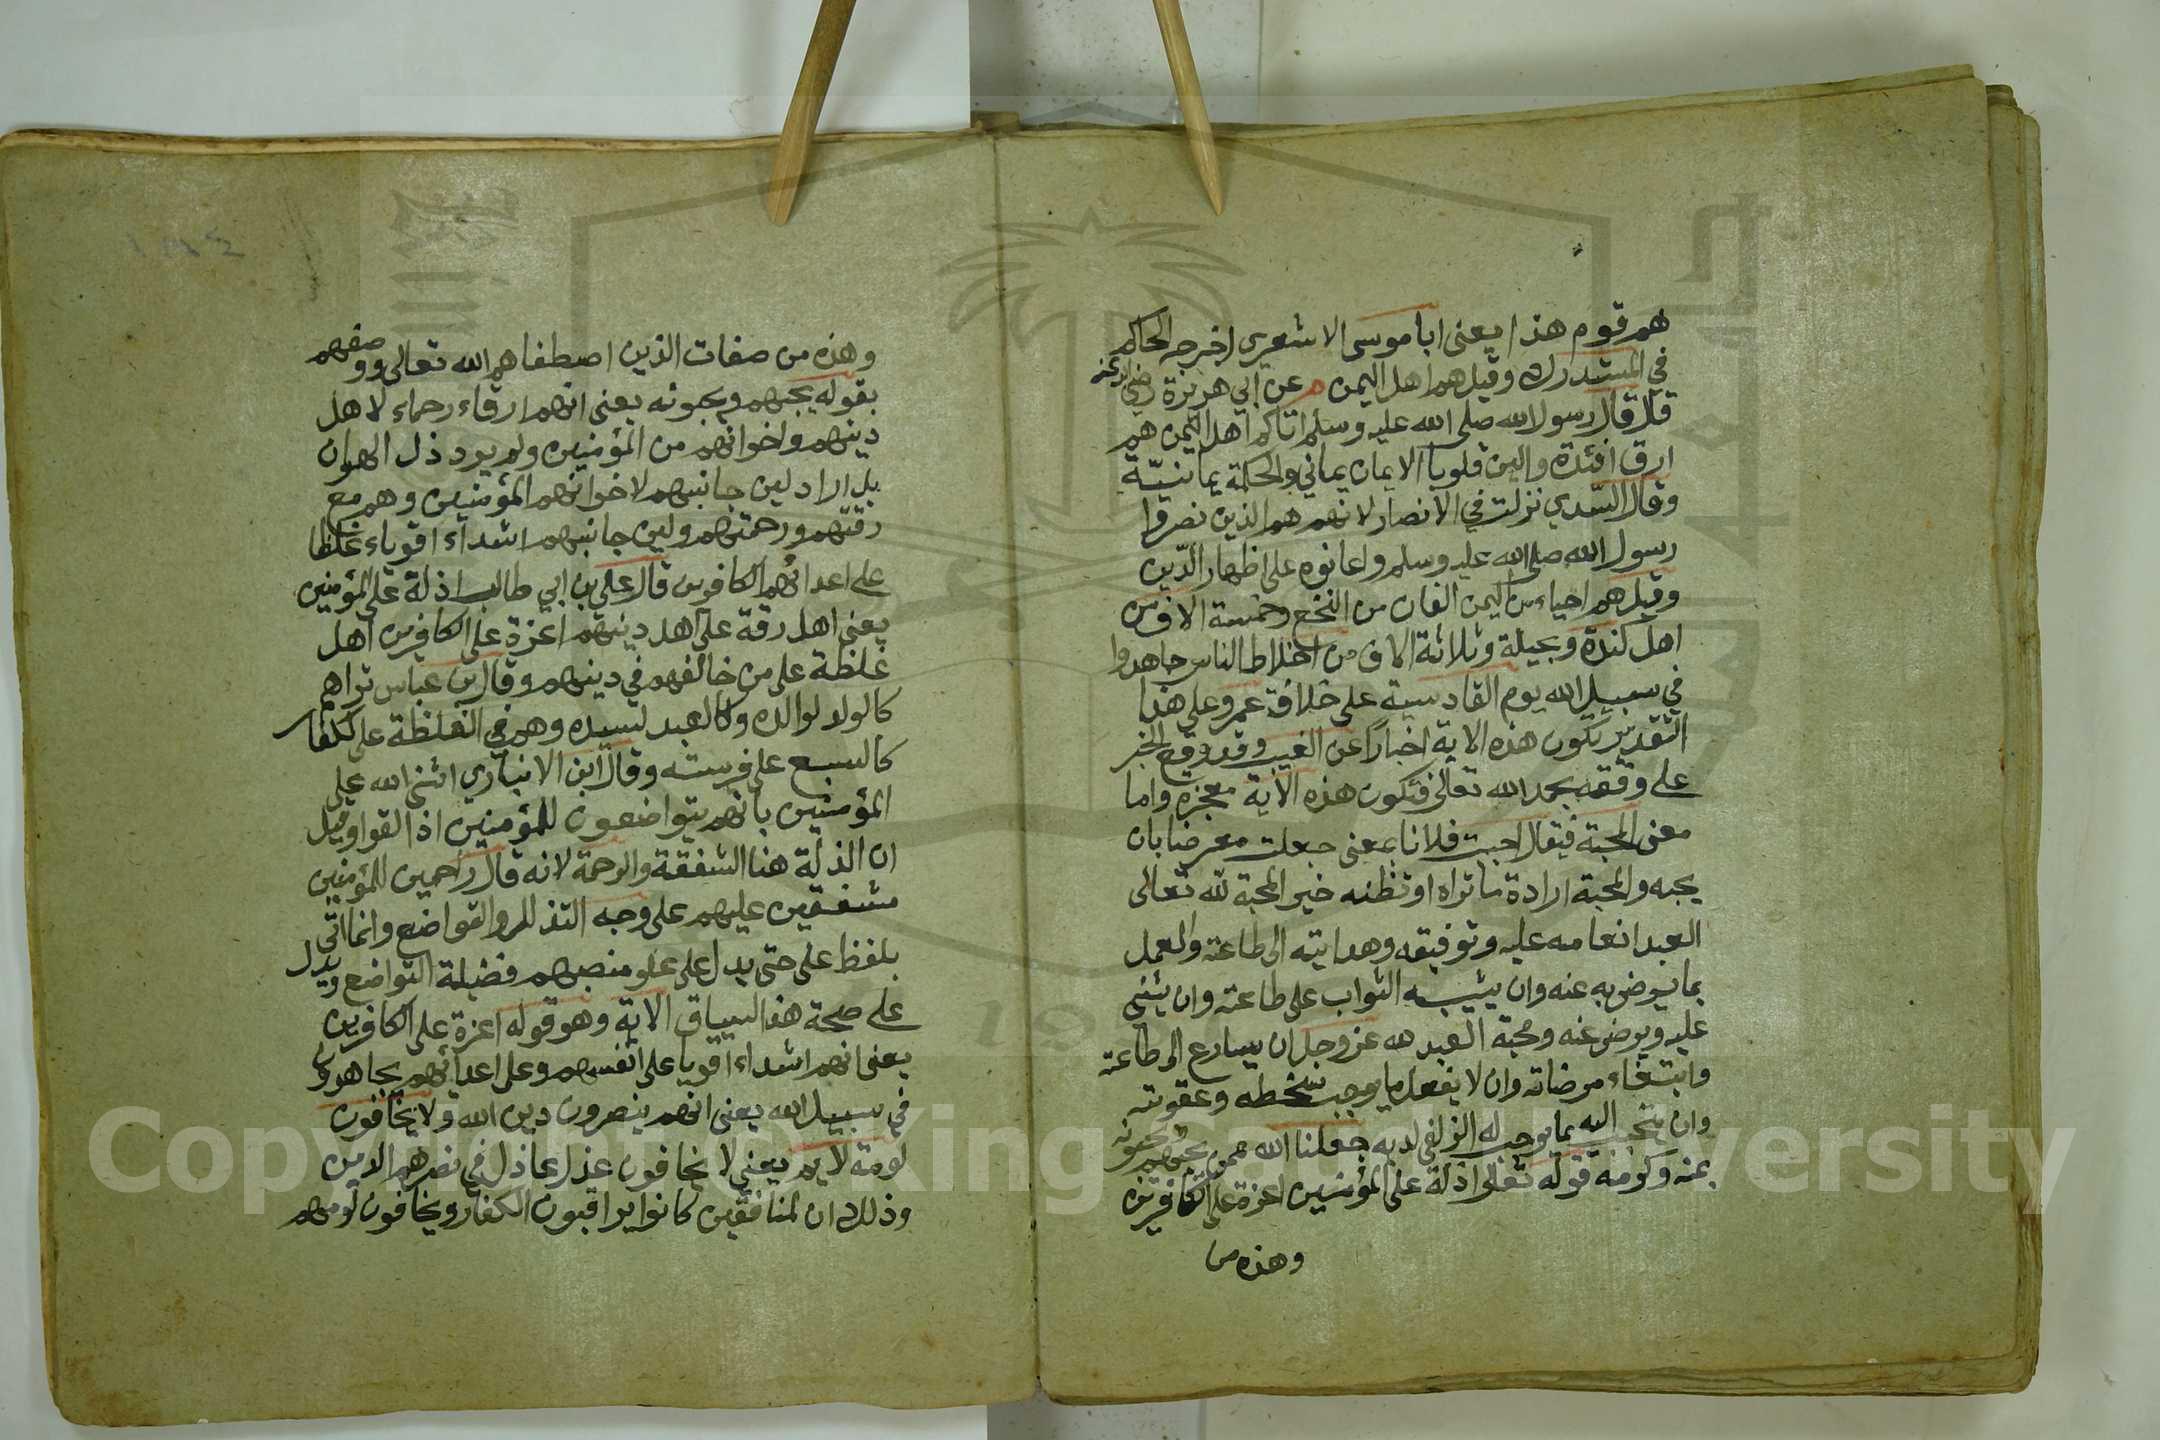 هم قوم هذا يعنى ابا موسى الاشعري اخرجه الحاكم
في المستدرك وقيل هم اهل اليمن م عن ابي هريرة رضي الله عنه
قال قال رسول الله صلى الله عليه وسلم اتاكم اهل اليمن هم
ارق افئدة والين قلوبا الايمان يماني والحكمة يمانيّة
وقال السّدي نزلت في الانصار لانهم هم الذين نصروا
رسول الله صلى الله عليه وسلم واعانوه على اظهار الدّين
وقيل هم احياء من اليمن الفان من النخع وخمسة الاف من
اهل كندة وبجيلة وثلاثة الاف من اخلاط الناس جاهدوا
في سبيل الله يوم القادسية على خلافة عمر وعلى هذا
التقدير تكون هذه الاية اخبارًا عن الغيب وقد وقع الخبر
على وفقه بحمد الله تعالى فتكون هذه الاية معجزة واما
معنى المحبة فيقال احببت فلانا بمعنى جعلت معرضا بان
يحبه والمحبة ارادة ما تراه او تظنه خير المحبة لله تعالى
العبد انعامه عليه وتوفيقه وهدايته الى طاعته والعمل
بما يرضى به عنه وان يثيبه الثواب على طاعته وان يثنى
عليه ويرضى عنه ومحبة العبد لله عز وجل ان يسارع الى طاعته
وابتغاء مرضاته وان لا يفعل ما يوجب سخطه وعقوبته
وان يتحبب اليه بما يوجب له الزلفى لديه جعلنا الله ممن يحبهم ويحبونه
بمنه وكرمه قوله تعالى اذلة على المؤمنين اعزة على الكافرين
وهذه من
وهذه من صفات الذين اصطفاهم الله تعالى ووصفهم
بقوله يحبهم ويحبونه يعنى انهم ارقاء رحماء لاهل
دينهم واخوانهم من المؤمنين ولم يرد ذل الهوان
بل اراد لين جانبهم لاخوانهم المؤمنين وهم مع
رقتهم ورحمتهم ولين جانبهم اشداء اقوياء غلظا
على اعدائهم الكافرين قال علي بن ابي طالب اذلة على المؤمنين
يعنى اهل رقة على اهل دينهم اعزة على الكافرين اهل
غلظة على من خالفهم في دينهم وقال بن عباس تراهم
كالولد لوالده وكالعبد لسيده وهم في الغلظة على الكفار
كالسبع على فريسته وقال ابن الانباري اثنى الله على
المؤمنين بانهم يتواضعون للمؤمنين اذا لقوا وقيل
ان الذلة هنا الشفقة والرحمة لانه قال راحمين للمؤمنين
مشفقين عليهم على وجه التذلل والتواضع وانما اتى
بلفظ على حتى يدل على علو منصبهم فضيلة التواضع ويدل
على صحة هذا السياق الاية وهو قوله اعزة على الكافرين
يعنى انهم اشداء اقويا على انفسهم وعلى اعدائهم يجاهدون
في سبيل الله يعنى انهم ينصرون دين الله ولا يخافون
لومة لايم يعنى لا يخافون عذل عاذل في نصرهم الدين
وذلك ان المنافقين كانوا يراقبون الكفار ويخافون لومهم
Copyright © King Saud University